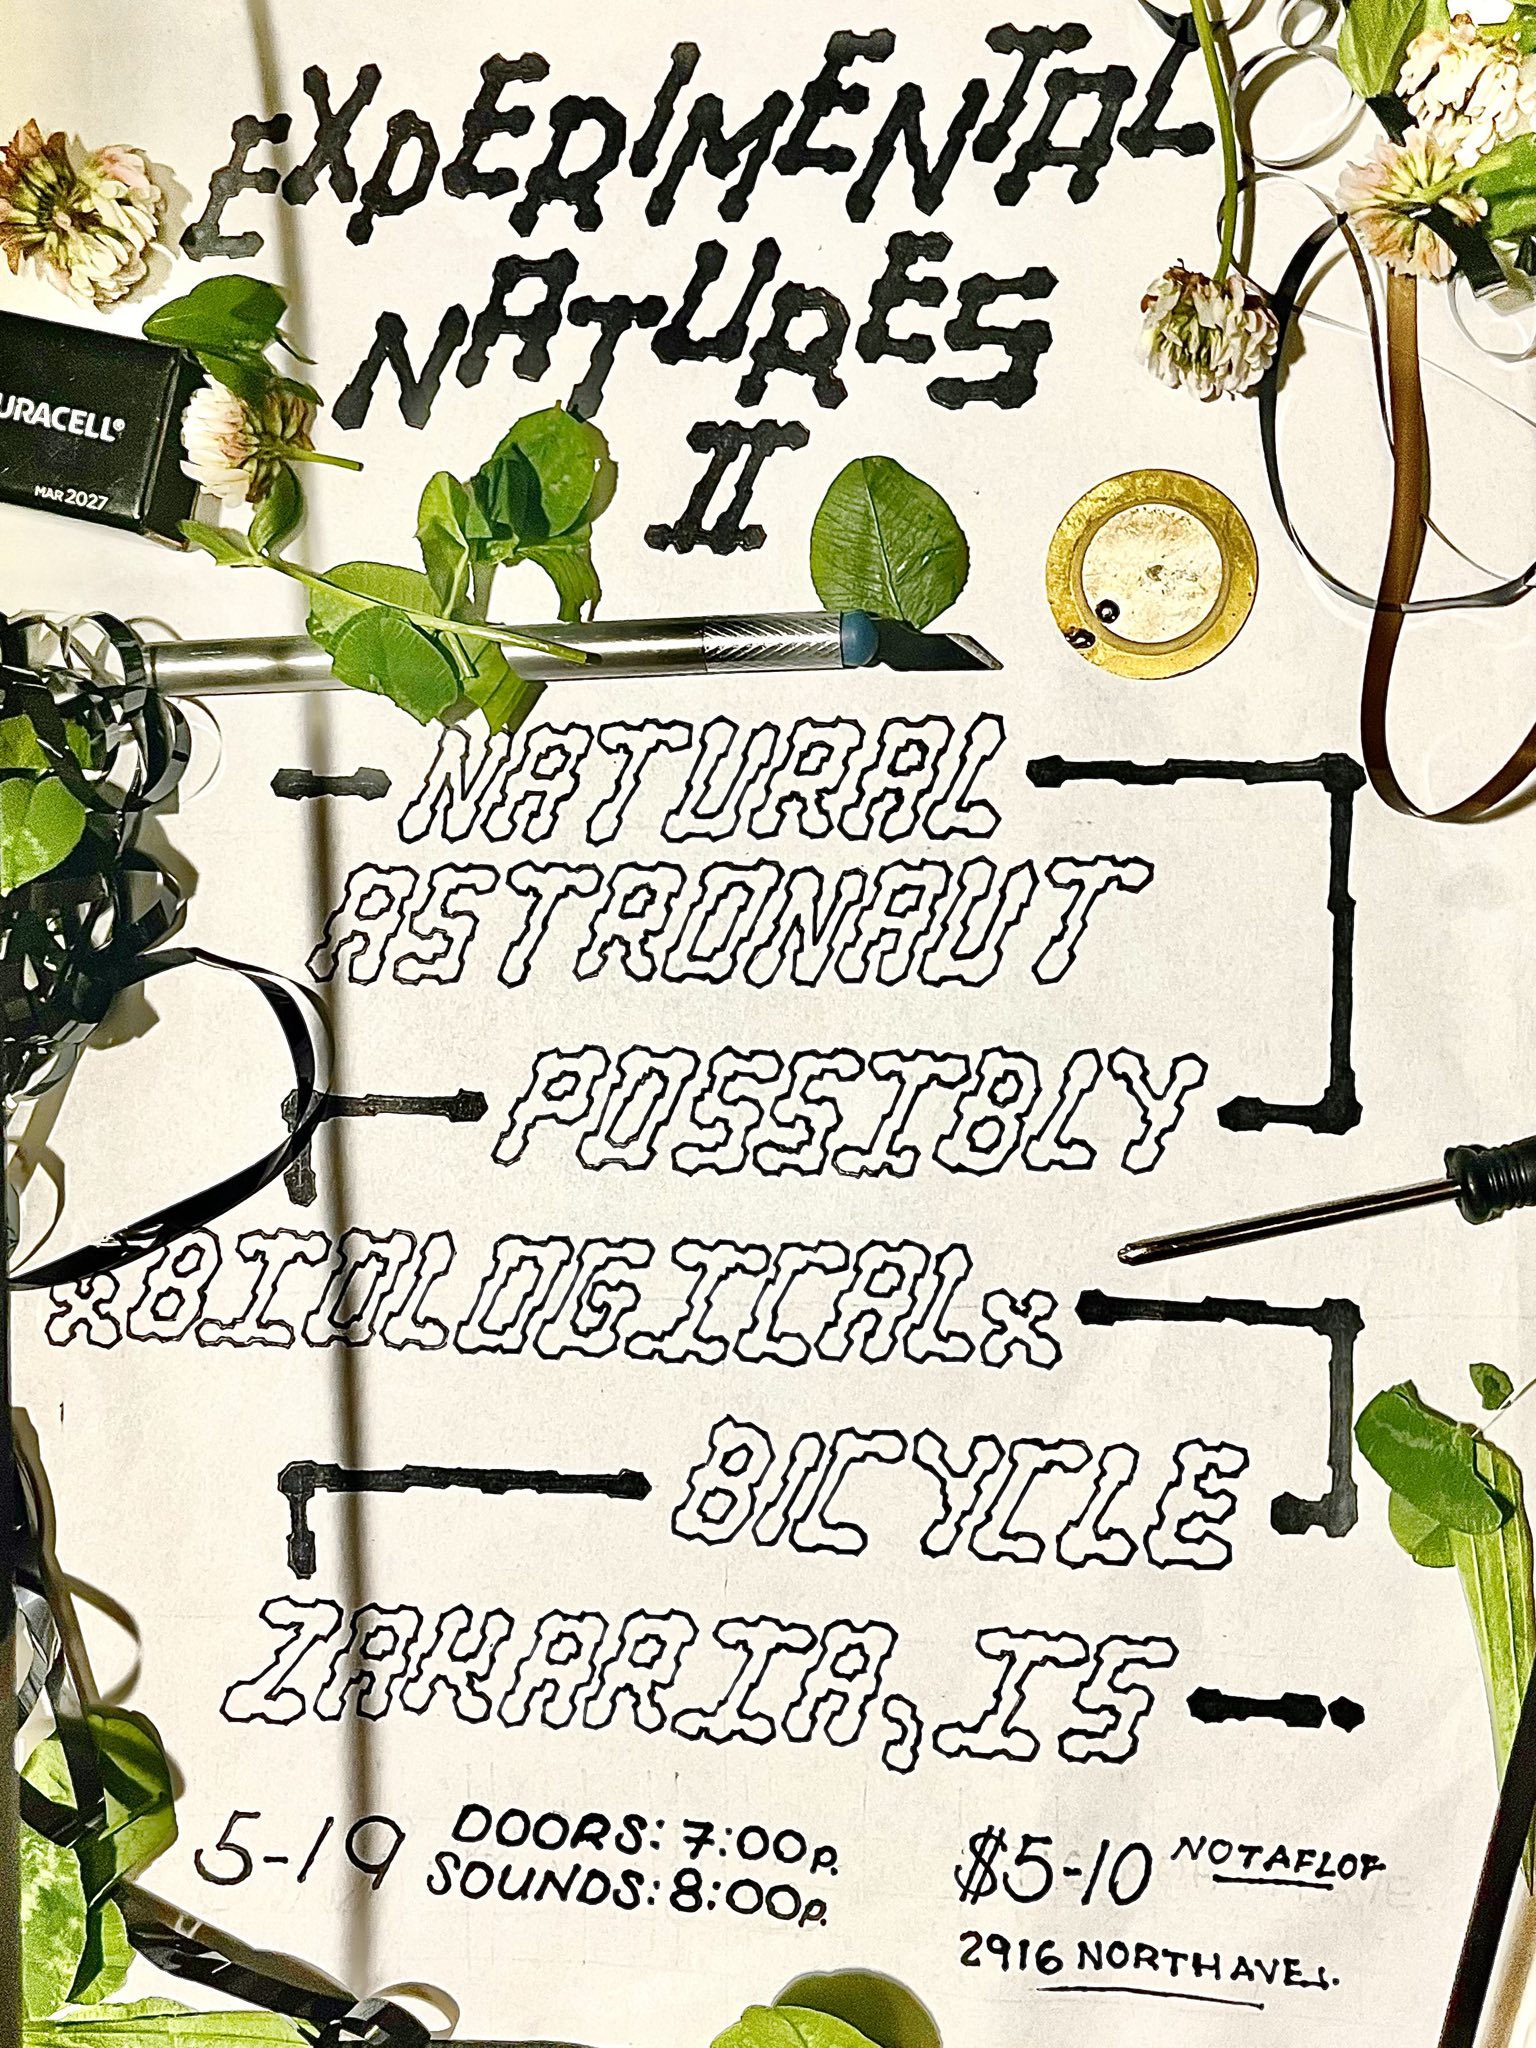 EXPERIMENTAL
NATURES
II
DURACELL®
MAR 2027
NATURAL
ASTRONAUT
POSSIBLY
xBIOLOGICALx
BICYCLE
ZAKARIA, IS
5-19
DOORS: 7:00p.
SOUNDS: 8:00p.
$5-10 NOTAFLOF
2916 NORTH AVE.